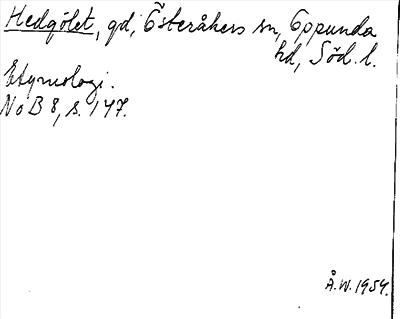 Hedgölet, gd, Österåkers sn, Oppunda
hd, Söd. l.
Etymologi.
NoB 8, s. 147.
Å.W. 1954.